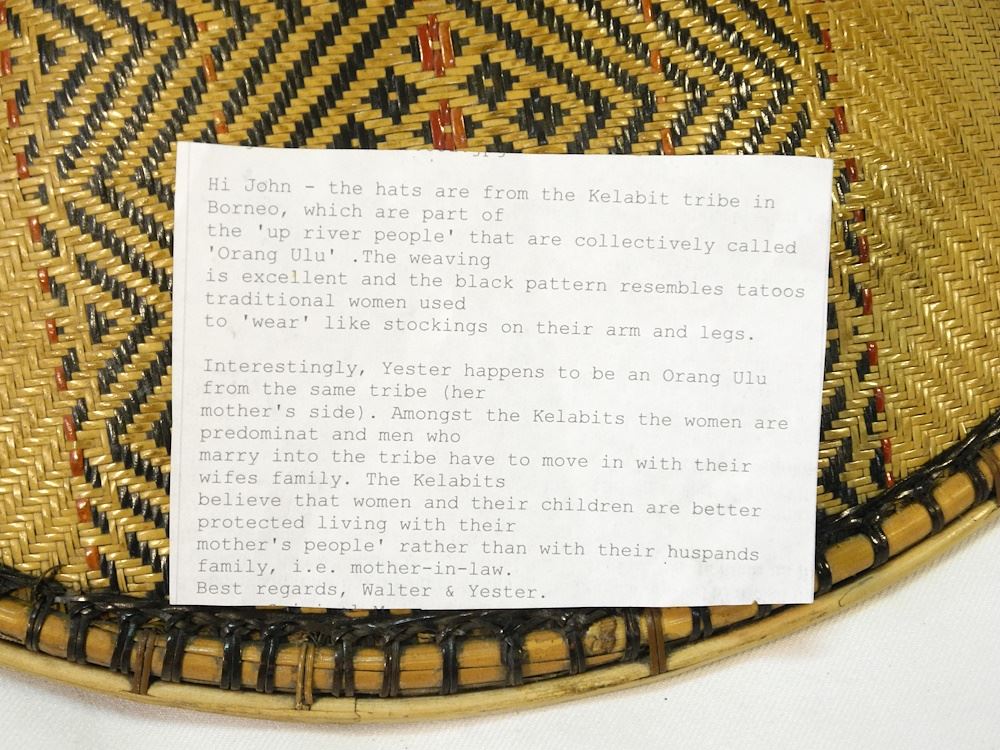 Hi John - the hats are from the Kelabit tribe in
Borneo, which are part of
the 'up river people' that are collectively called
'Orang Ulu' .The weaving
is excellent and the black pattern resembles tatoos
traditional women used
to 'wear' like stockings on their arm and legs.
Interestingly, Yester happens to be an Orang Ulu
from the same tribe (her
mother's side). Amongst the Kelabits the women are
predominat and men who
marry into the tribe have to move in with their
wifes family. The Kelabits
believe that women and their children are better
protected living with their
mother's people' rather than with their huspands
family, i.e. mother-in-law.
Best regards, Walter & Yester.